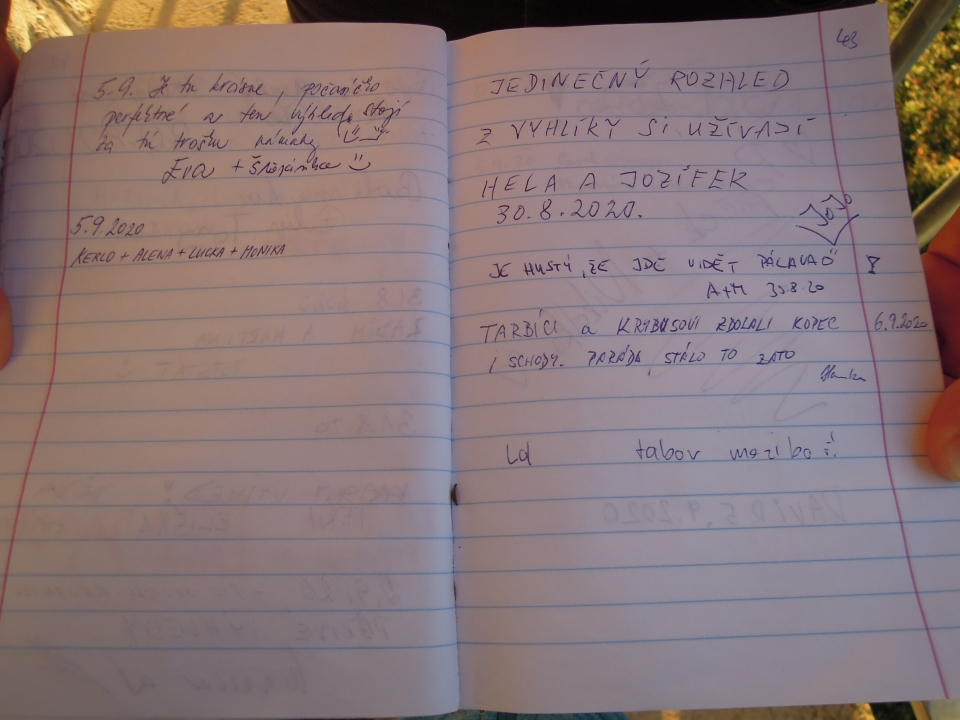 5.9. Je tu krásně, počasíčko
perfektné a ten výhled stojí
za tú trošku námahy
Eva + Štěpánka
5.9.2020
KERLO + ALENA + LUCKA + MONIKA
43
JEDINEČNÝ ROZHLED
Z VYHLÍKY SI UŽÍVAJÍ
HELA A JOZÍFEK
30.8.2020.
JOJO
JE HUSTÝ, ŽE JDE VIDĚT PÁLAVA
A+M 30.8.20
TARBÍCI a KRYBUSOVI ZDOLALI KOPEC 6.9.2020
I SCHODY. PARÁDA, STÁLO TO ZATO
tabor meziboří